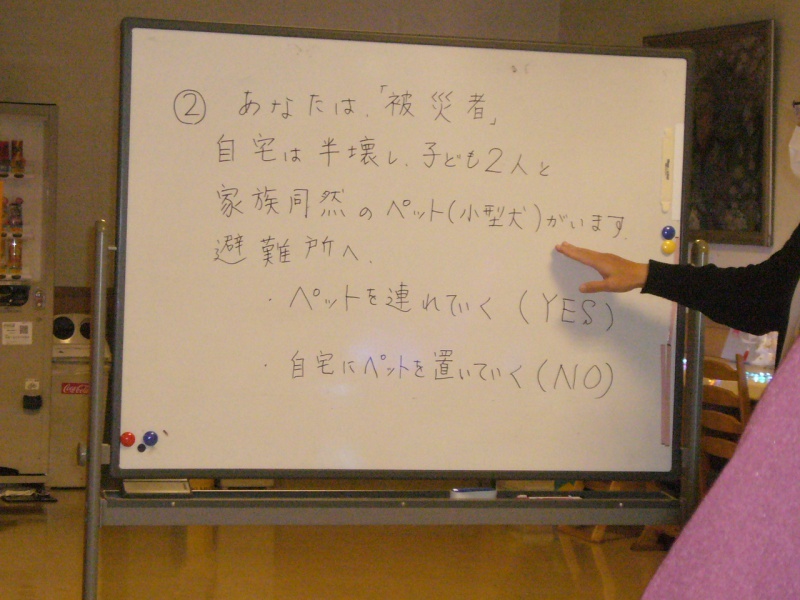 ② あなたは、「被災者」
自宅は半壊し、子ども2人と
家族同然のペット(小型犬)がいます。
避難所へ、
・ペットを連れていく (YES)
・自宅にペットを置いていく (NO)
Coca-Cola